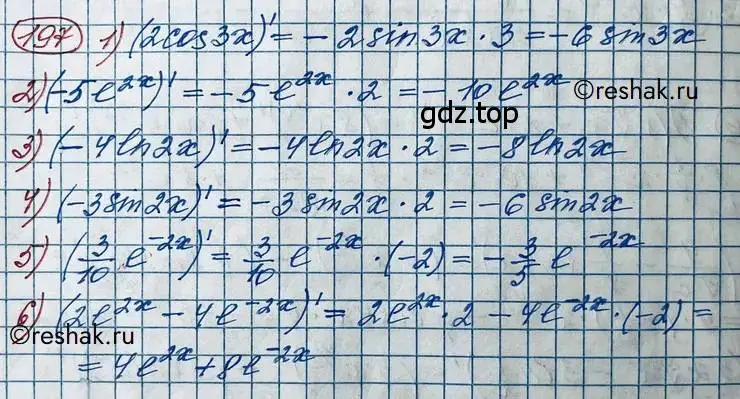 197 1) (2cos3x)' = - 2sin3x · 3 = -6sin3x
2) (-5e^{2x})' = -5e^{2x} · 2 = -10e^{2x}
©reshak.ru
gdz.top
3) (-4ln2x)' = -4ln2x · 2 = -8ln2x
4) (-3sin2x)' = -3sin2x · 2 = -6sin2x
5) (3/10 e^{-2x})' = 3/10 e^{-2x} · (-2) = -3/5 e^{-2x}
6) (2e^{2x} - 4e^{-2x})' = 2e^{2x} · 2 - 4e^{-2x} · (-2) =
= 4e^{2x} + 8e^{-2x}
©reshak.ru
©reshak.ru